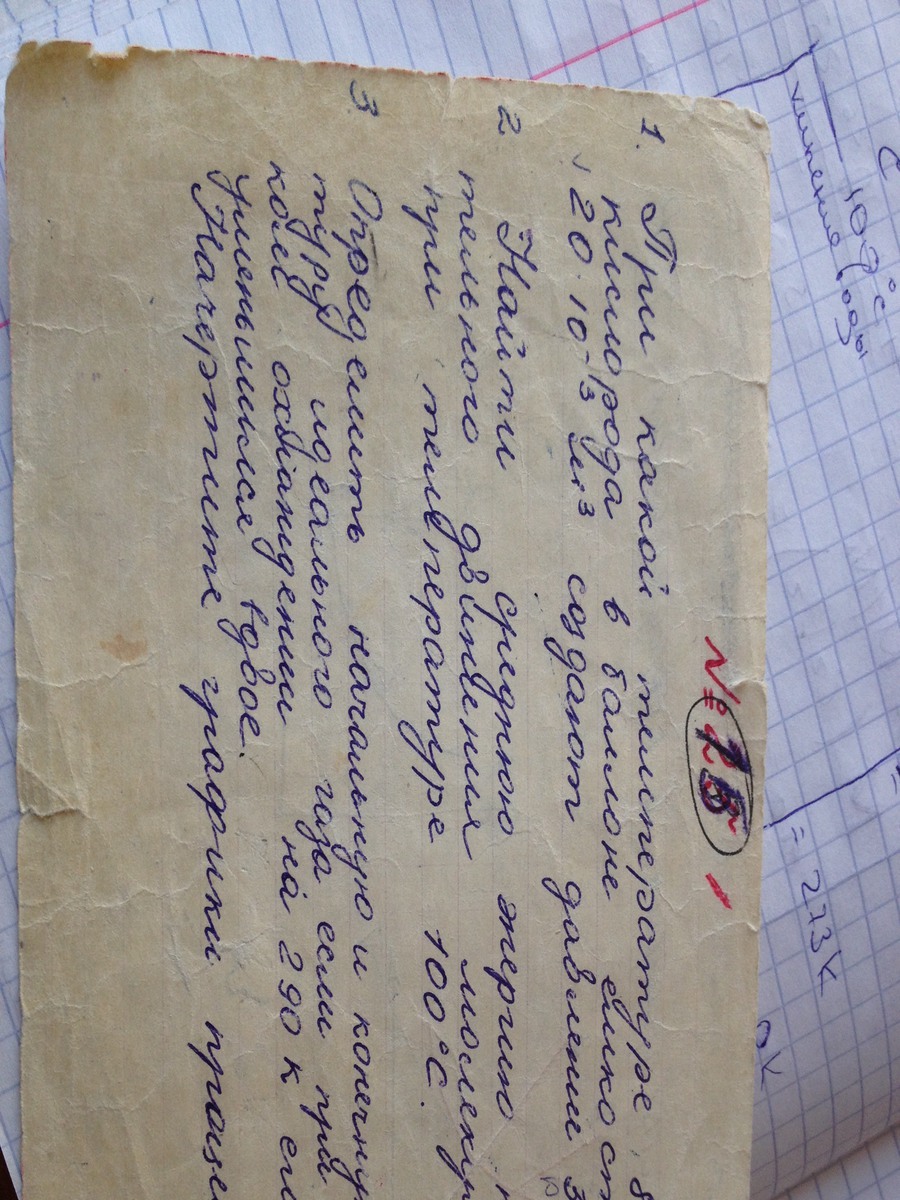 № 15
1. При какой температуре 8
кислорода в баллоне ёмкост
20·10⁻³ м³ создают давление 3
2 Найти среднюю энергию п
тельного движения молекул
при температуре 100°С.
3. Определить начальную и конечну
туру идеального газа если при
ком охлаждении на 290 К ег
уменьшился вдвое.
Начертите графики процес
С
100°С
кипения воды
= 273К
0К